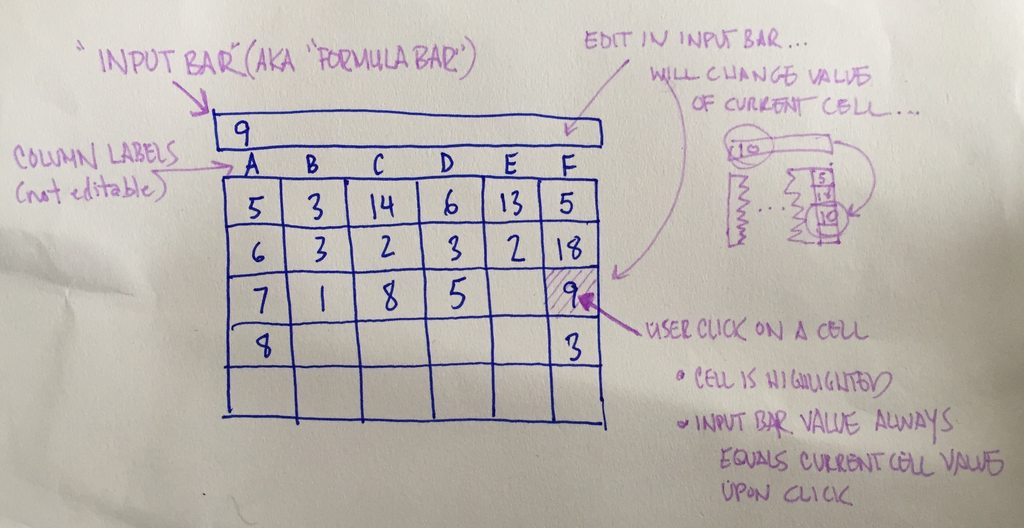 "INPUT BAR" (AKA "FORMULA BAR")
EDIT IN INPUT BAR...
WILL CHANGE VALUE
OF CURRENT CELL...
9
COLUMN LABELS
(not editable)
A B C D E F
5 3 14 6 13 5
6 3 2 3 2 18
7 1 8 5 9
8 3
10
...
5
10
USER CLICK ON A CELL
• CELL IS HIGHLIGHTED
• INPUT BAR VALUE ALWAYS
EQUALS CURRENT CELL VALUE
UPON CLICK